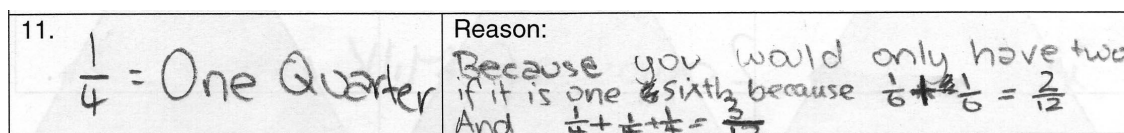 11.
1/4 = One Quarter
Reason:
Because you would only have two
if it is one sixth because 1/6 + 1/6 = 2/12
And 1/4 + 1/4 + 1/4 = 3/12